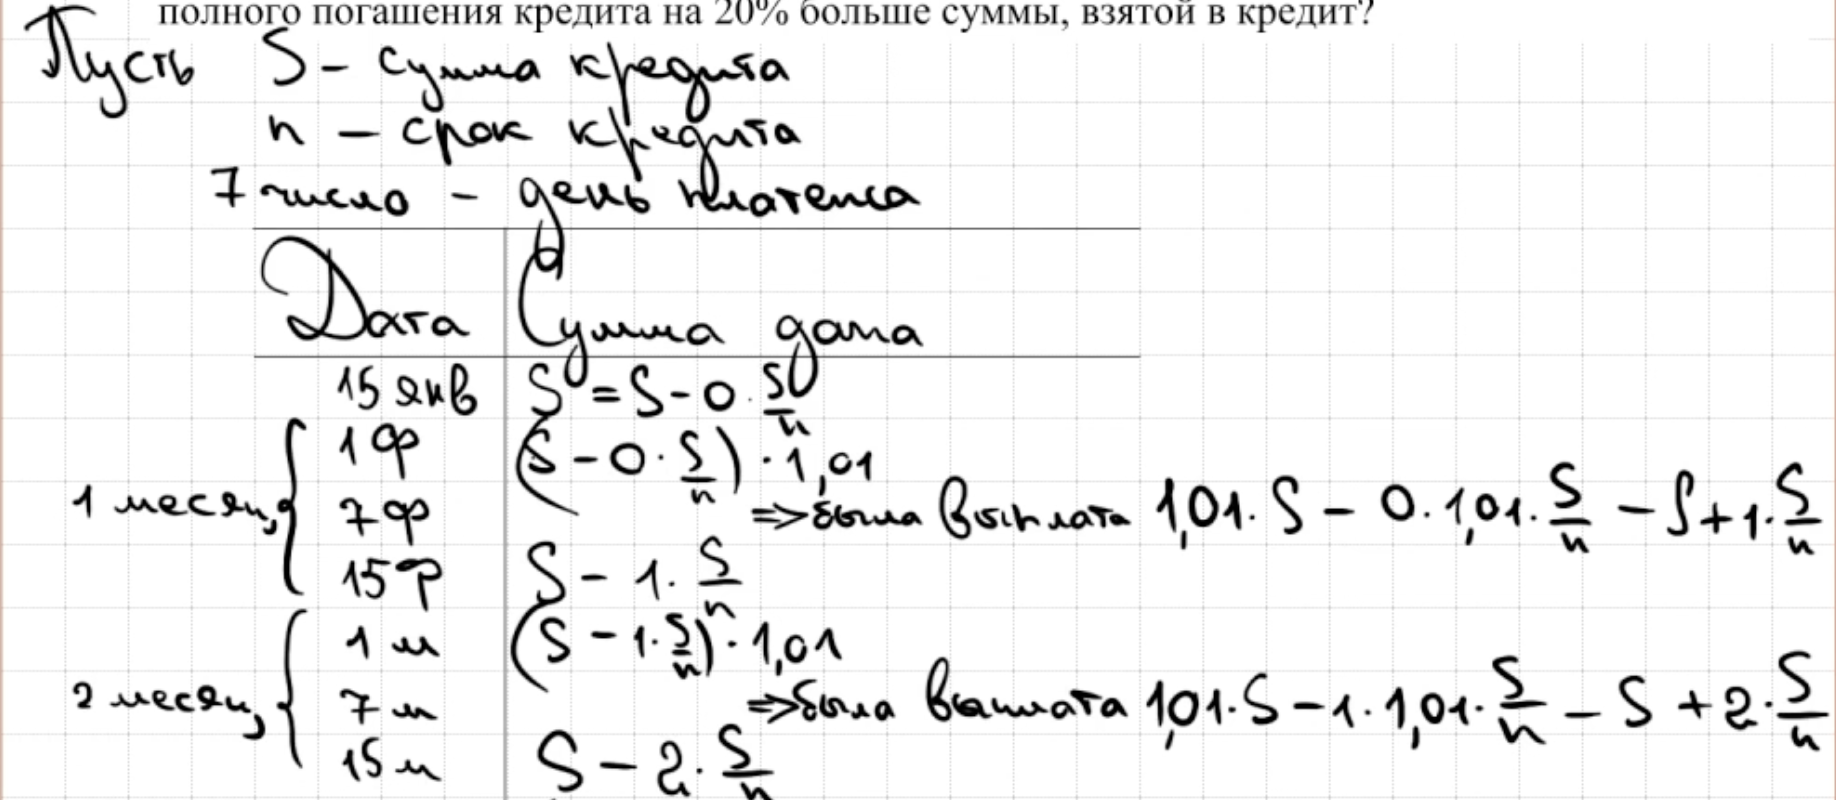 полного погашения кредита на 20% больше суммы, взятой в кредит?
Пусть S - сумма кредита
n - срок кредита
7 число - день платежа
Дата Сумма долга
15 янв S = S - 0 · S/n
1 ф (S - 0 · S/n) · 1,01
1 месяц 7 ф => была выплата 1,01 · S - 0 · 1,01 · S/n - S + 1 · S/n
15 ф S - 1 · S/n
1 м (S - 1 · S/n) · 1,01
2 месяц 7 м => была выплата 1,01 · S - 1 · 1,01 · S/n - S + 2 · S/n
15 м S - 2 · S/n